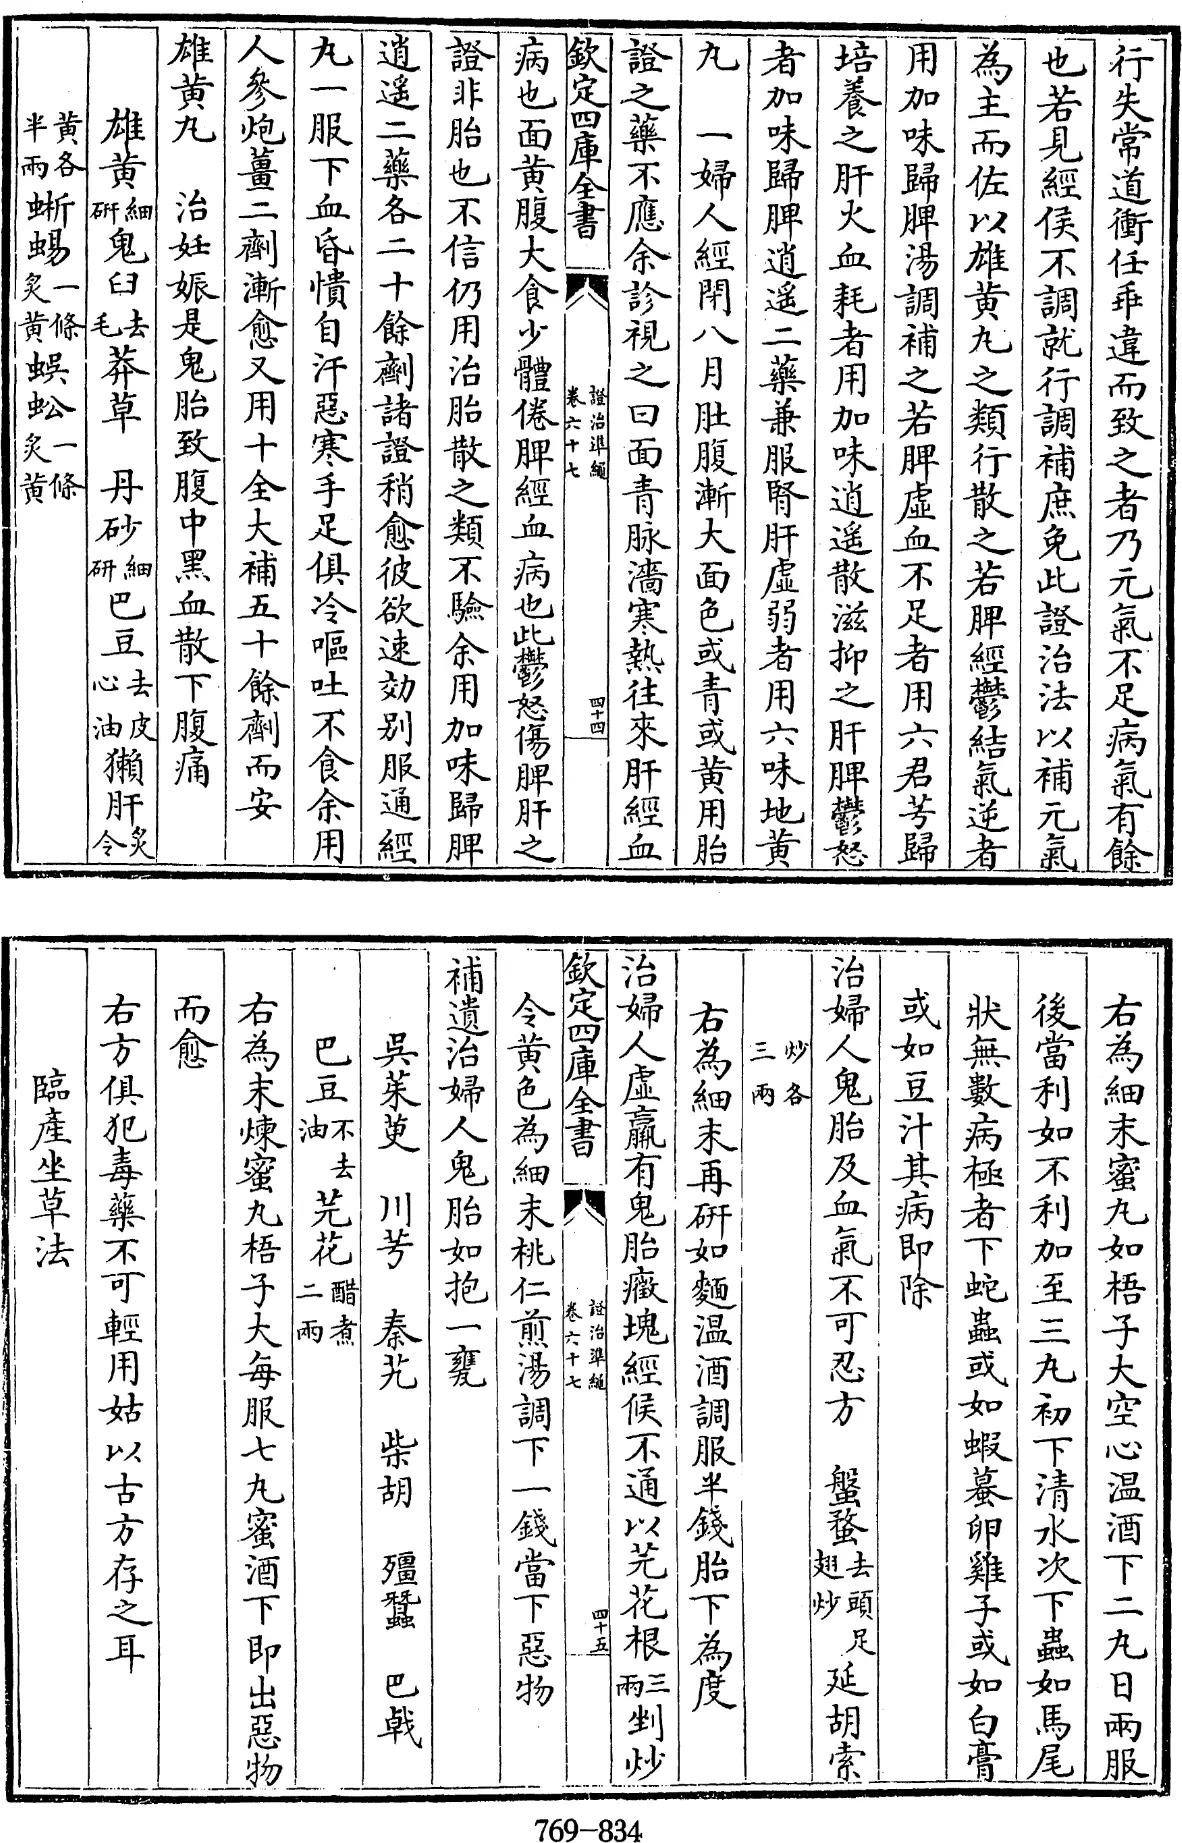 行失常道衝任乖違而致之者乃元氣不足病氣有餘
也若見經候不調就行調補庶免此證治法以補元氣
為主而佐以雄黄丸之類行散之若脾經鬱結氣逆者
用加味歸脾湯調補之若脾虛血不足者用六君芎歸
培養之肝火血耗者用加味逍遥散滋抑之肝脾鬱怒
者加味歸脾逍遥二藥兼服腎肝虛弱者用六味地黄
丸　一婦人經閉八月肚腹漸大面色或青或黄用胎
證之藥不應余診視之曰面青脉濇寒熱往來肝經血
欽定四庫全書　證治準繩　卷六十七　四十四
病也面黄腹大食少體倦脾經血病也此鬱怒傷脾肝之
證非胎也不信仍用治胎散之類不驗余用加味歸脾
逍遥二藥各二十餘劑諸證稍愈彼欲速効别服通經
丸一服下血昏憒自汗惡寒手足俱冷嘔吐不食余用
人參炮薑二劑漸愈又用十全大補五十餘劑而安
雄黄丸　治妊娠是鬼胎致腹中黑血散下腹痛
雄黄細研鬼臼去毛莽草　丹砂細研巴豆去皮心油獺肝炙令
黄各半兩蜥蜴一條炙黄蜈蚣一條炙黄
右為細末蜜丸如梧子大空心温酒下二丸日兩服
後當利如不利加至三丸初下清水次下蟲如馬尾
狀無數病極者下蛇蟲或如蝦蟇卵雞子或如白膏
或如豆汁其病即除
治婦人鬼胎及血氣不可忍方　盤蝥去頭足翅炒延胡索
炒各三兩
右為細末再研如麵温酒調服半錢胎下為度
治婦人虛羸有鬼胎癥塊經候不通以芫花根三兩剉炒
欽定四庫全書　證治準繩　卷六十七　四十五
令黄色為細末桃仁煎湯調下一錢當下惡物
補遺治婦人鬼胎如抱一甕
吳茱萸　川芎　秦艽　柴胡　殭蠶　巴戟
巴豆不去油芫花醋煮二兩
右為末煉蜜丸梧子大每服七丸蜜酒下即出惡物
而愈
右方俱犯毒藥不可輕用姑以古方存之耳
臨產坐草法
769-834